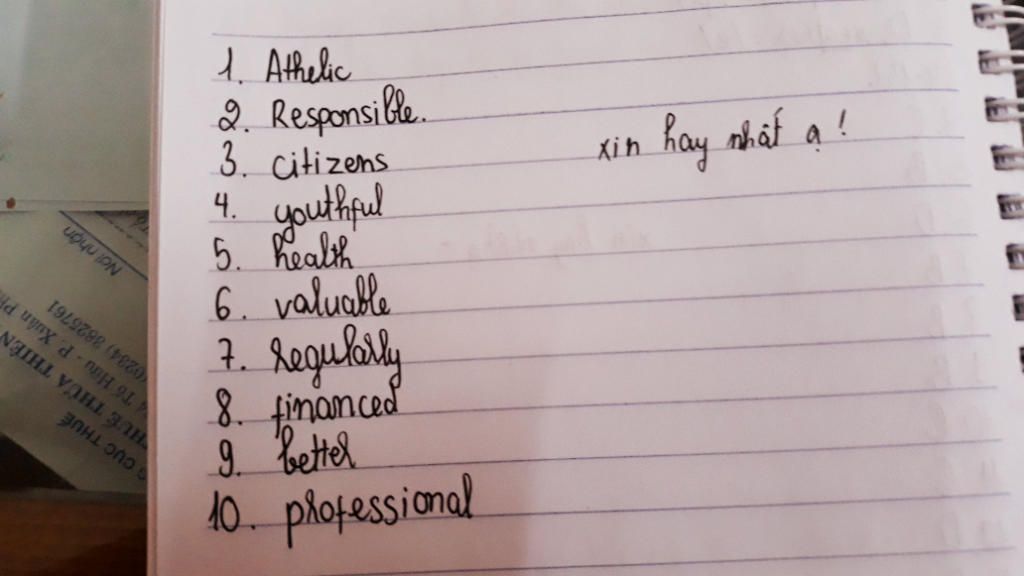 1. Athelic
2. Responsible.
3. citizens
xin hay nhất ạ !
4. youthful
5. health
6. valuable
7. regularly
8. financed
9. better
10. professional
Nơi nhận
(0234) 3825761
4 Tố Hữu - P. Xuân
HUẾ THỪA THIÊN
CỤC THUẾ